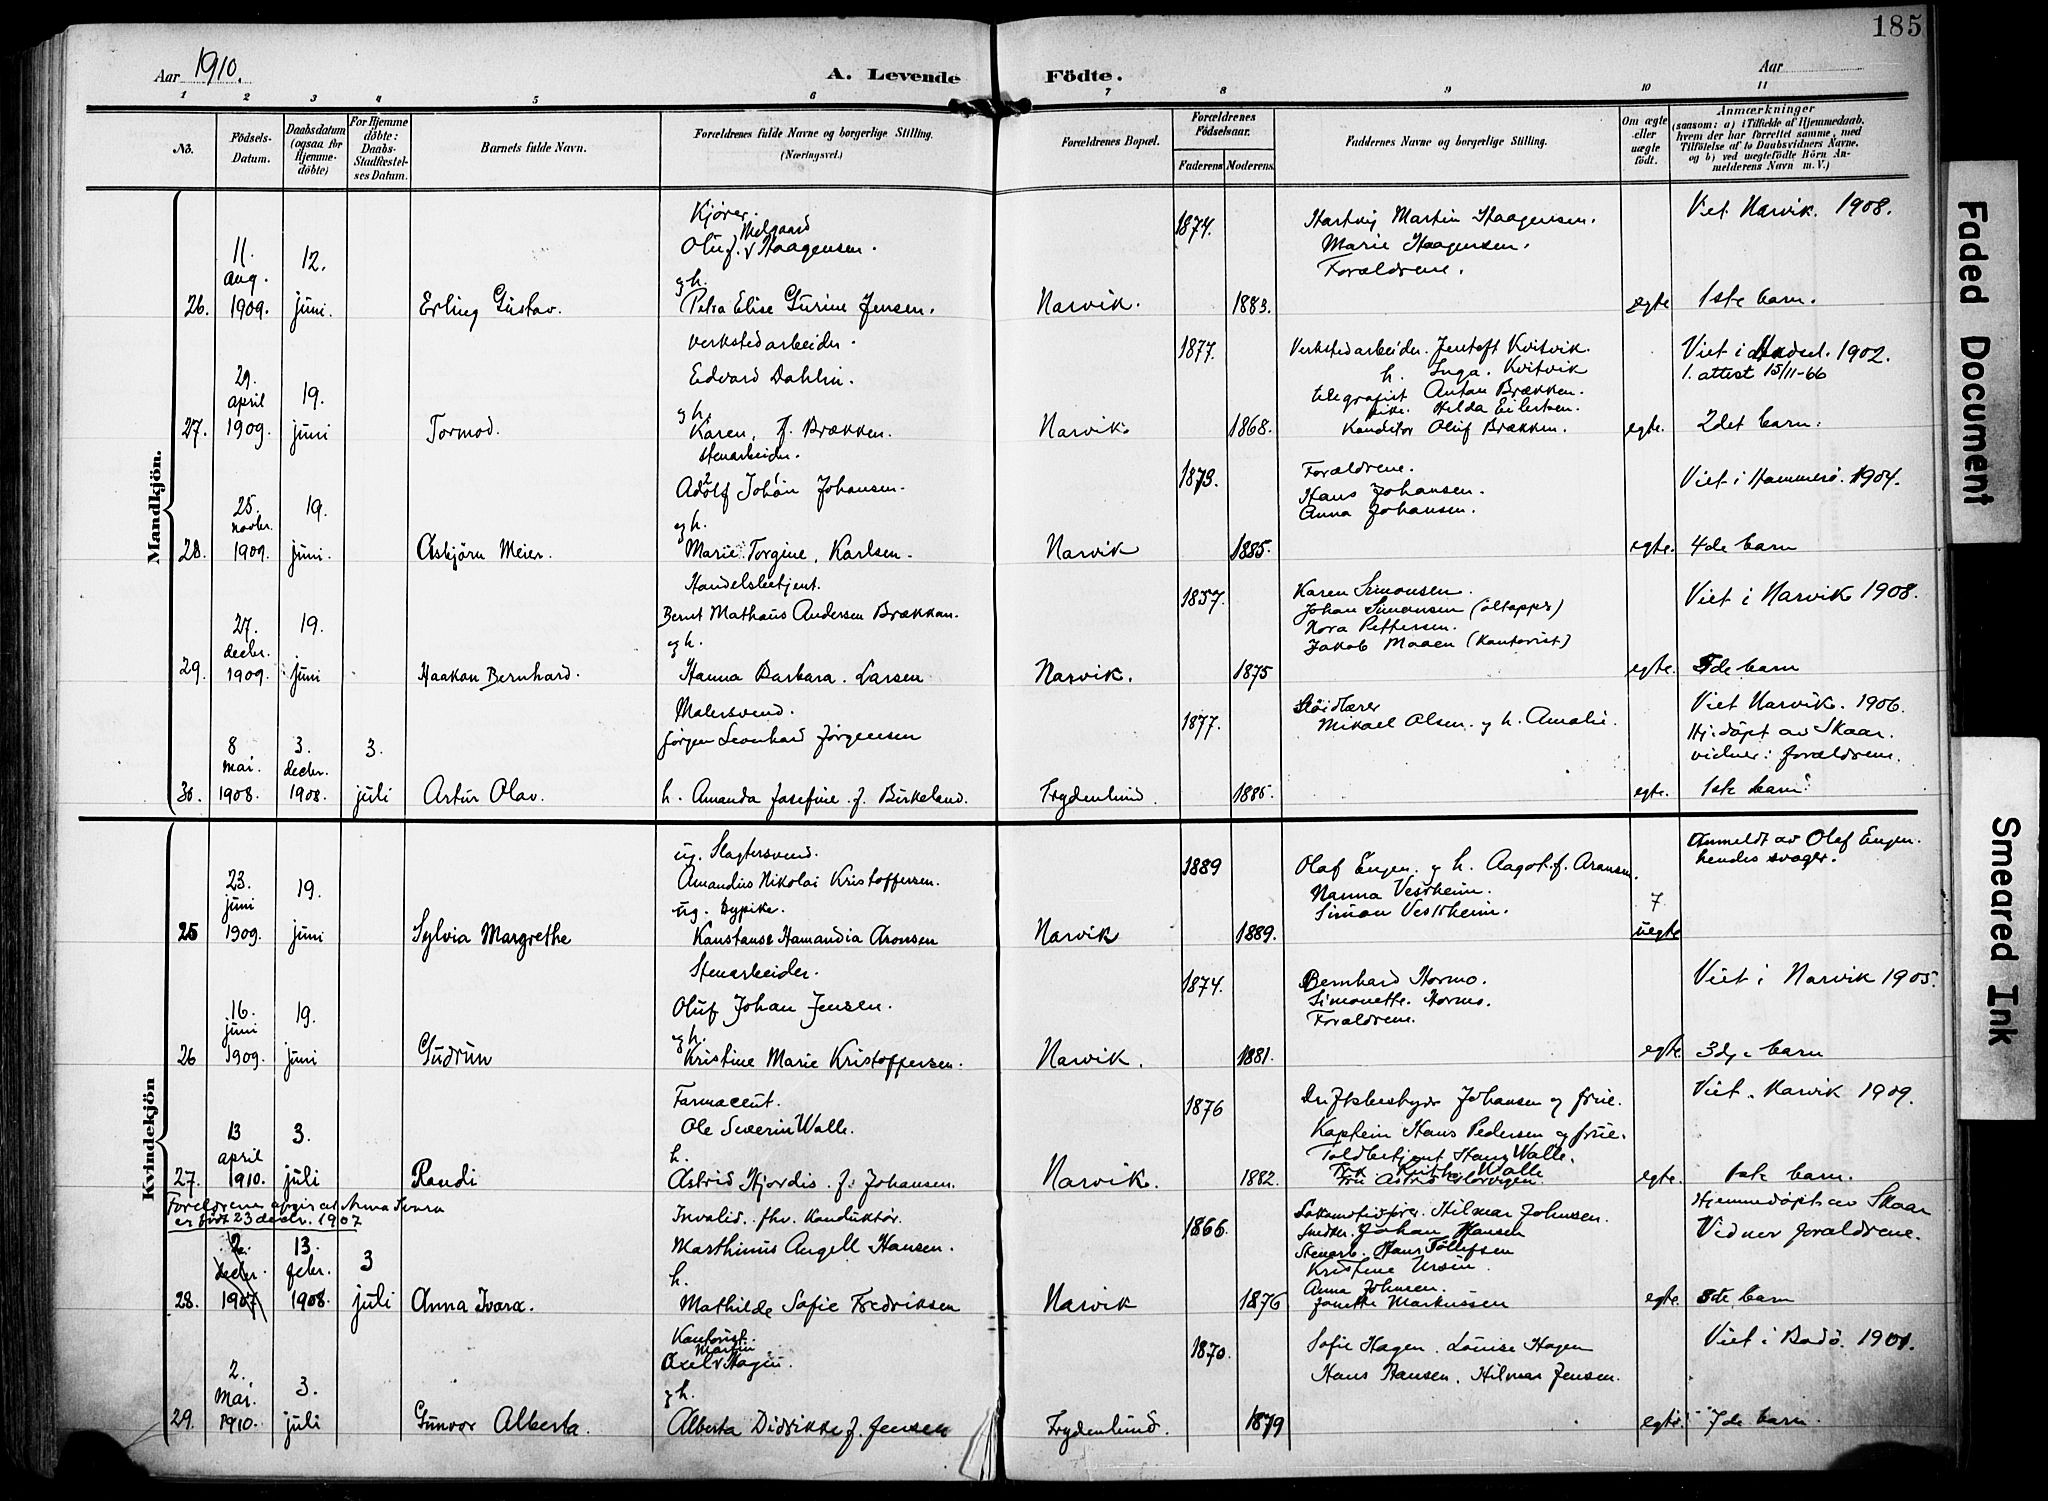 185
Aar 1910.
A. Levende Födte.
Aar
1 2 3 4 5 6 7 8 9 10 11
No.
Födsels-
Datum.
Daabsdatum
(ogsaa for
Hjemme-
döbte)
For Hjemme
döbte:
Daabs-
Stadfæstel-
ses Datum.
Barnets fulde Navn.
Forældrenes fulde Navne og borgerlige Stilling.
(Næringsvei.)
Forældrenes Bopæl.
Forældrenes
Födselsaar.
Faderens Moderens
Faddernes Navne og borgerlige Stilling.
Om ægte
eller
uægte
födt.
Anmærkninger
(saasom: a) i Tilfælde af Hjemmedaab,
hvem der har forrettet samme, med
Tilföielse af to Daabsvidners Navne,
og b) ved uægtefödte Börn An-
melderens Navn m. V.)
Mandkjön.
26.
11.
aug.
1909.
12.
juni.
Erling Gustav.
Kjører.
Melgaard
Oluf. v Haagensen.
g h.
Petra Elise Gurine Jensen.
Narvik.
1874.
1883.
Hartvig Martin Haagensen.
Marie Haagensen.
Forældrene.
egte
Viet Narvik. 1908.
1ste barn.
27.
29.
april
1909.
19.
juni
Tormod.
verkstedarbeider.
Edvard Dahlin.
g h.
Karen, f. Brækken.
Narvik.
1877.
1868.
Verkstedarbeider. Jentoft Kvitvik.
h. Inga. Kvitvik
telegrafist Anton Brækken.
pike. Hilda Eilertsen.
Konditor Oluf Brækken.
egte.
Viet i Hadsel. 1902.
l. attest 15/11-66
2det barn.
28.
25.
novbr.
1909.
19.
juni.
Asbjörn Meier.
stenarbeider.
Adolf Johan Johansen.
g h.
Marie Torgine, Karlsen.
Narvik
1873.
1885.
Forældrene.
Hans Johansen.
Anna Johansen.
egte.
Viet i Hammerö. 1904.
4de barn
29.
27.
decbr.
1909.
19.
juni
Haakon Bernhard.
Handelsbetjent.
Bernt Mathæus Andersen Brækkan.
g h.
Hanna Barbara. Larsen
Narvik.
1857.
1875
Karen Simonsen.
Johan Simonsen (öltapper)
Nora Pettersen.
Jakob Moaen (Kontorist)
egte.
Viet i Narvik 1908.
5de barn
30.
8
mai.
1908.
3.
decbr.
1908.
3.
juli
Artur Olav.
Malersvend.
Jørgen Leonhard Jørgensen
h. Amanda Josefine. f. Birkeland.
Frydenlund.
1877.
1885.
Slöidlærer
Mikael Olsen. g h. Amalie.
egte.
Viet Narvik. 1906.
Hj. döpt av Skaar.
vidner: forældrene.
1ste barn.
Kvindekjön
25
23.
juni
1909.
19.
juni
Sylvia Margrethe
ug. Slagtersvend.
Amandus Nikolai Kristoffersen.
ug. bypike.
Konstanse Hamandia Aronsen
Narvik
1889
1889.
Olaf Engen. g h. Aagot. f. Aronsen.
Nanna Vestheim.
Simon Vestheim.
7
uegte
Anmeldt av Olaf Engen.
hendes svoger.
26
16.
juni
1909.
19.
juni
Gudrun
Stenarbeider.
Oluf Johan Jensen.
g h.
Kristine Marie Kristoffersen.
Narvik.
1874.
1881.
Bernhard Hormo.
Simonette. Hormo.
Forældrene.
egte
Viet i Narvik 1905.
3dje barn
27.
13
april
1910.
3.
juli
Randi
Farmaceut.
Ole Severin Walle.
h.
Astrid Hjordis. f. Johansen.
Narvik.
1876
1882.
Driftsbestyrer Johansen og frue.
Kaptein Hans Pedersen og frue.
Toldbetjent Hans Walle.
Frk. Ruth Walle
Fru Astrid
egte.
Viet. Narvik 1909.
1ste barn.
Forældrene opgir at Anna Ivara
er født 23 decbr. 1907
28.
2.
decbr.
1907
13.
febr.
1908.
3
juli
Anna Ivara.
Invalid. fhv. Konduktör.
Marthinus Angell Hansen.
h.
Mathilde Sofie Fredriksen
Narvik
1866.
1876
Lokomotivfører. Hilmar Johnsen.
Snedker. Johan Hansen
Stenarb. Hans Tollefsen
Kristine Ursin.
Anna Johnsen.
Janette Markussen
egte.
Hjemmedöpt av Skaar
Vidner forældrene.
8de barn
29.
2.
Mai.
1910.
3.
juli
Gunvor Alberta.
Kontorist.
Martin
Axel v Hagen.
g h.
Alberta Didrikke f. Jensen
Frydenlund.
1870.
1879
Sofie Hagen. Louise Hagen
Hans Hansen. Hilmar Jensen.
egte.
Viet i Bodö. 1901.
7de barn.
Faded Document
Smeared Ink